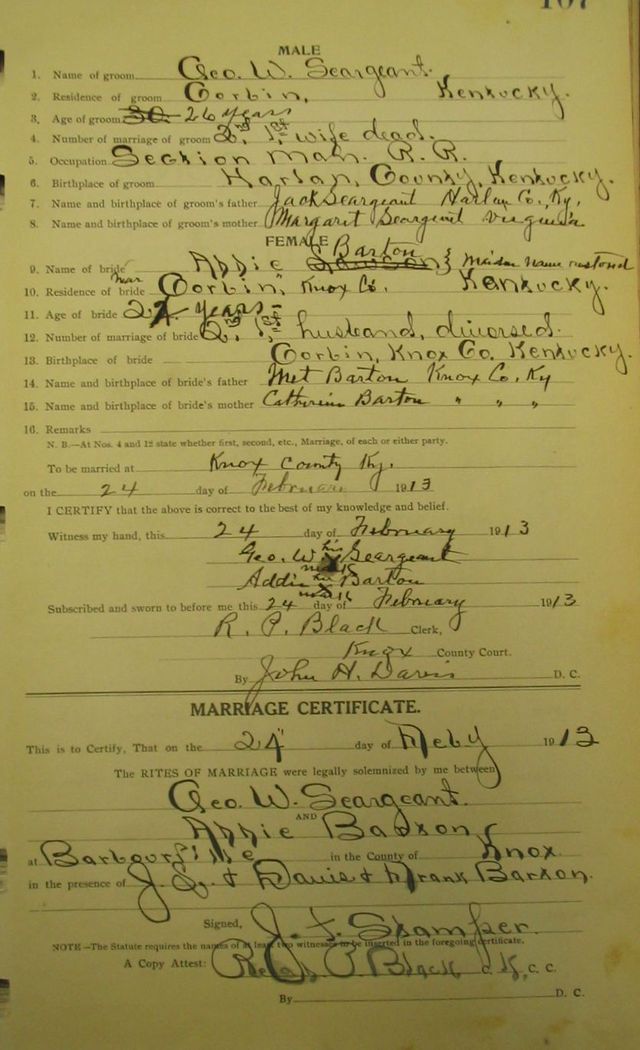 107
MALE
1. Name of groom Geo. W. Seargeant.
2. Residence of groom Corbin, Kentucky.
3. Age of groom 30 26 years
4. Number of marriage of groom 2nd 1st wife dead.
5. Occupation Section Man. R. R.
6. Birthplace of groom Harlan, County, Kentucky.
7. Name and birthplace of groom's father Jack Seargeant Harlan Co. Ky,
8. Name and birthplace of groom's mother Margaret Seargeant Virginia
FEMALE
Barton
9. Name of bride Addie Lawson } Maiden name restored
near
10. Residence of bride Corbin, Knox Co. Kentucky.
11. Age of bride years
12. Number of marriage of bride 2nd 1st husband, divorsed.
13. Birthplace of bride Corbin, Knox Co. Kentucky.
14. Name and birthplace of bride's father Met Barton Knox Co. Ky
15. Name and birthplace of bride's mother Catherine Barton " " "
16. Remarks
N. B.—At Nos. 4 and 12 state whether first, second, etc., Marriage, of each or either party.
To be married at Knox County Ky.
on the 24 day of Februar 1913
I CERTIFY that the above is correct to the best of my knowledge and belief.
Witness my hand, this 24 day of February 1913
Geo. W. his x mark Seargeant
Addie her x mark Barton
Subscribed and sworn to before me this 24 day of February 1913
R. P. Black Clerk,
Knox County Court.
By John H. Davis D. C.
MARRIAGE CERTIFICATE.
This is to Certify, That on the 24 day of Feby 1913
The RITES OF MARRIAGE were legally solemnized by me between
Geo. W. Seargeant.
AND
Addie Barton
at Barbourville in the County of Knox.
in the presence of Davis + Frank Barton.
Signed, J. F. Stamper.
NOTE—The Statute requires the names of at least two witnesses to be inserted in the foregoing certificate.
A Copy Attest: P Black C. K. C. C.
By D. C.